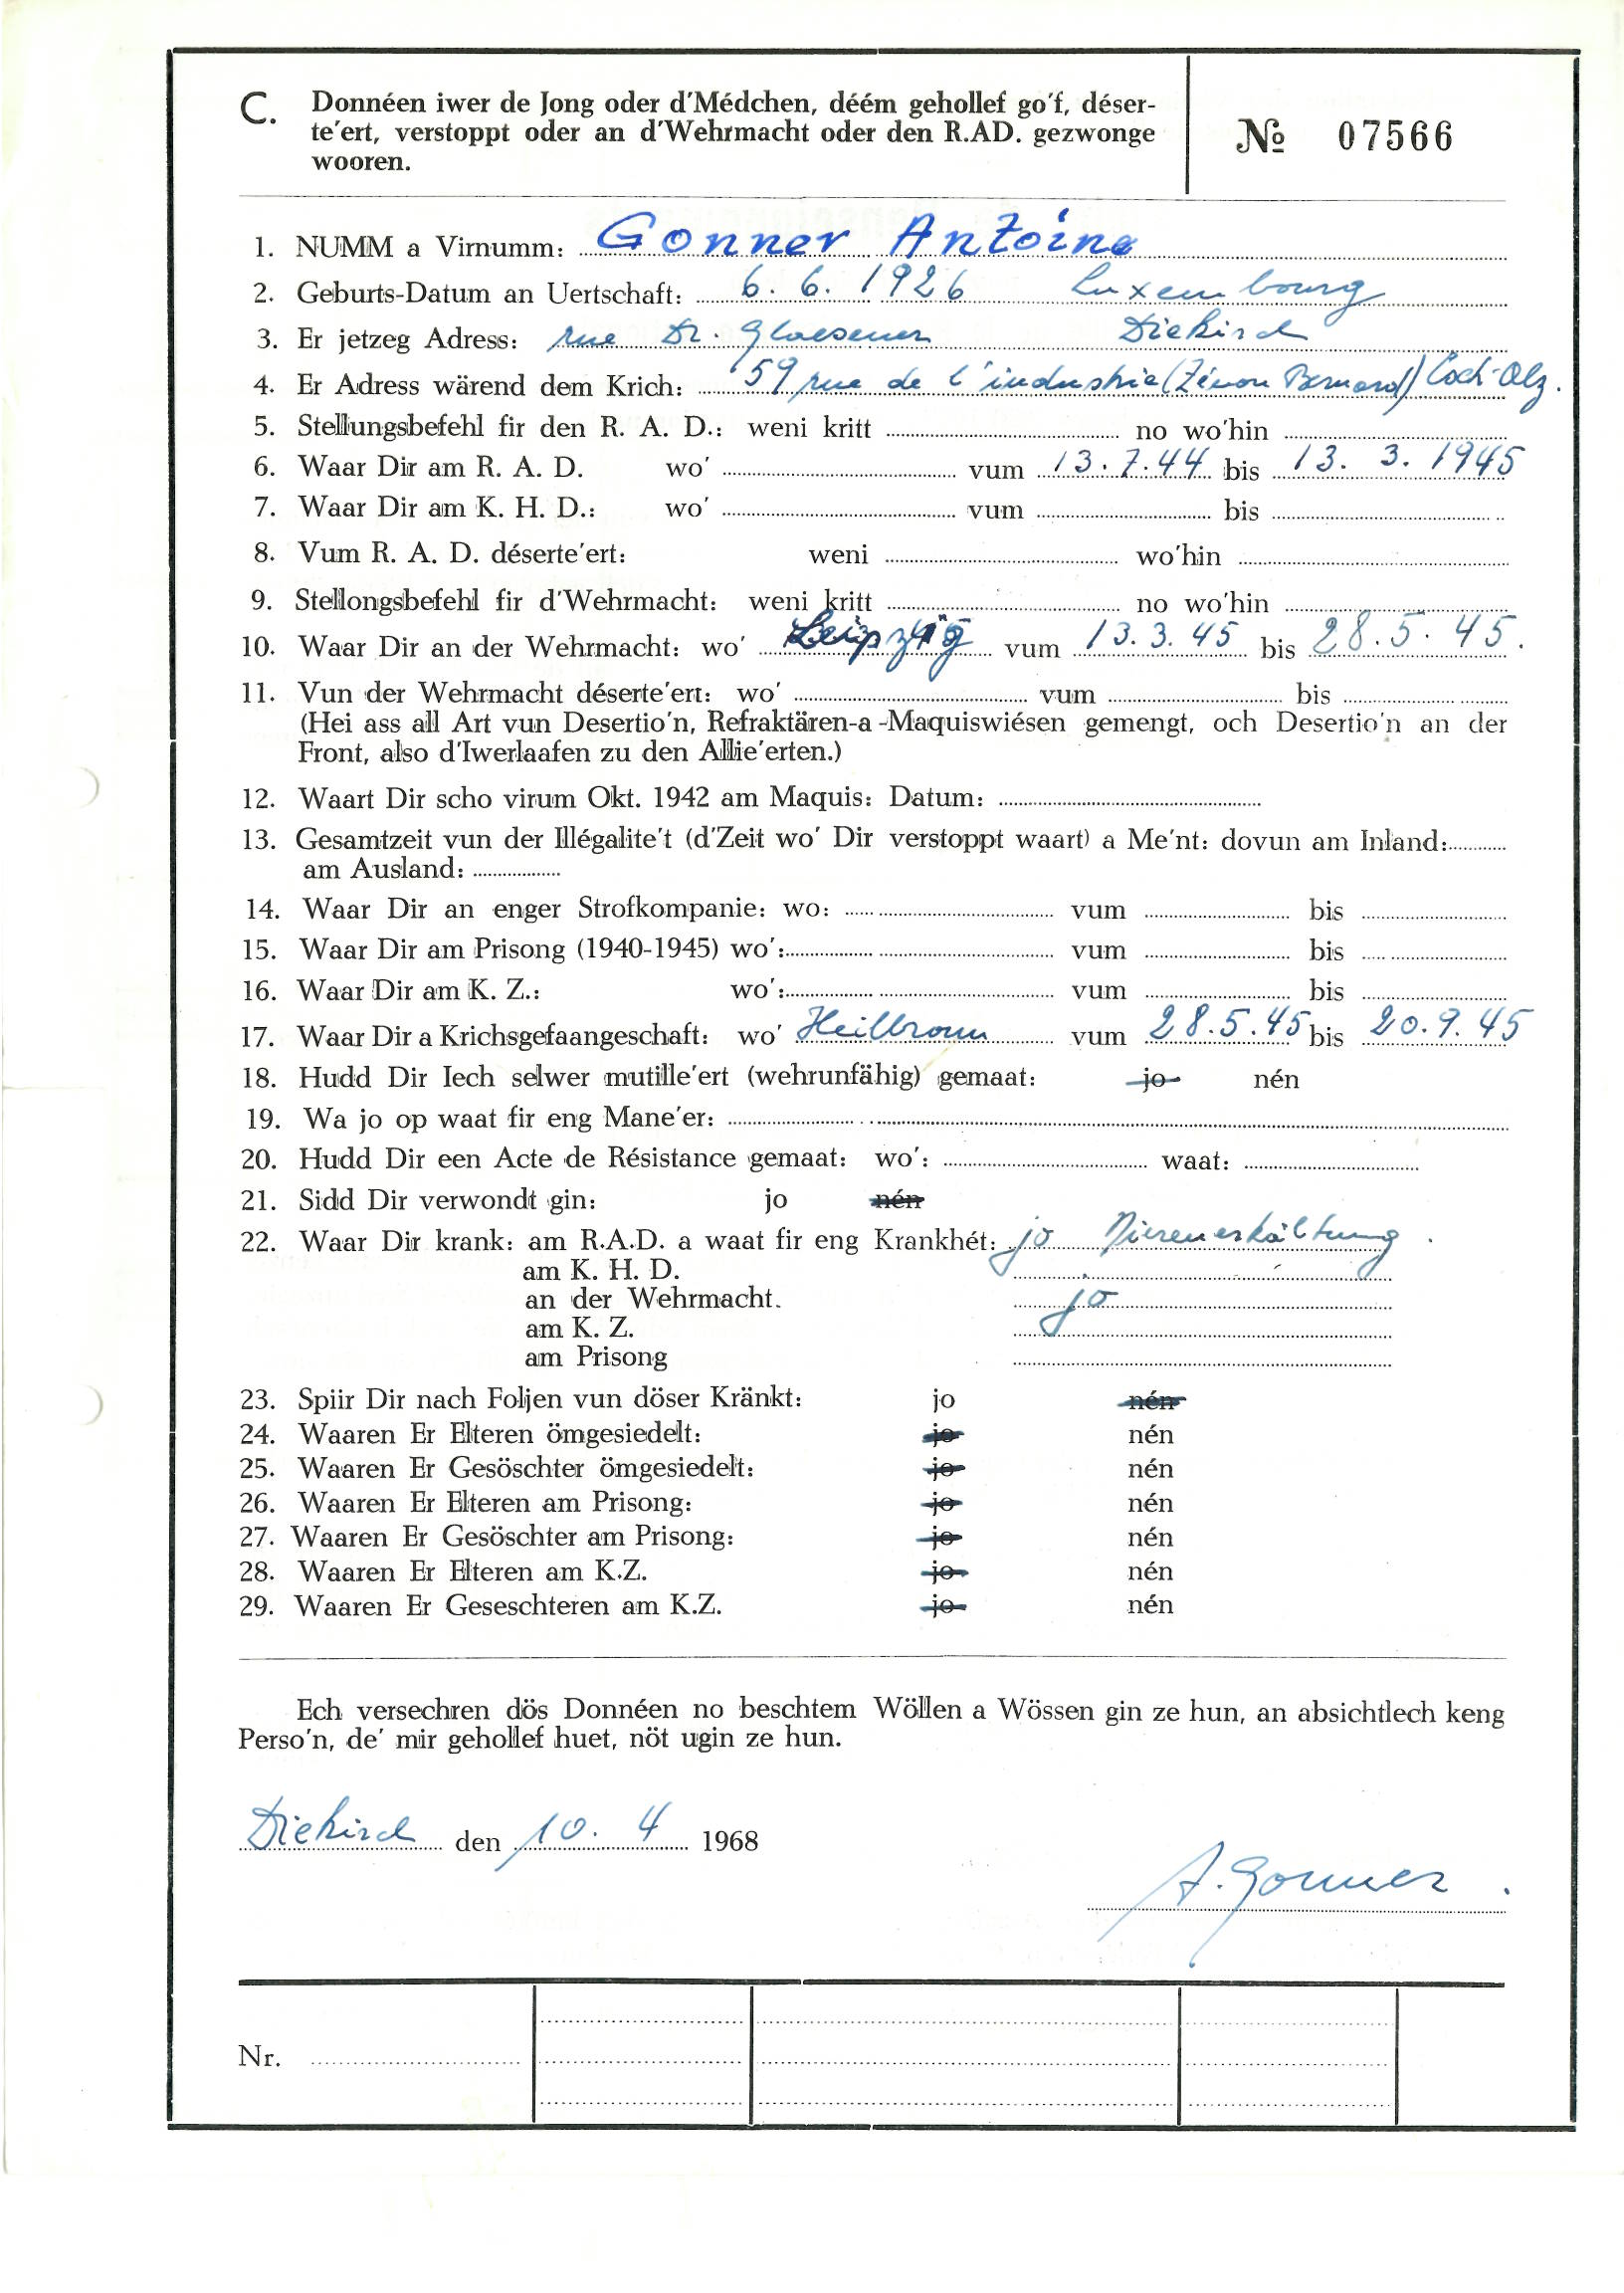 C. Donnéen iwer de Jong oder d'Médchen, déém gehollef go'f, déser-
te'ert, verstoppt oder an d'Wehrmacht oder den R.AD. gezwonge
wooren.
№ 07566
1. NUMM a Virnumm: Gonner Antoine
2. Geburts-Datum an Uertschaft: 6. 6. 1926 Luxembourg
3. Er jetzeg Adress: rue Dr. Glaesener Diekirch
4. Er Adress wärend dem Krich: 59 rue de l'industrie (Zénon Bernard) Esch-Alz.
5. Stellungsbefehl fir den R. A. D.: weni kritt no wo'hin
6. Waar Dir am R. A. D. wo' vum 13.7.44 bis 13. 3. 1945
7. Waar Dir am K. H. D.: wo' vum bis
8. Vum R. A. D. déserte'ert: weni wo'hin
9. Stellongsbefehl fir d'Wehrmacht: weni kritt no wo'hin
10. Waar Dir an der Wehrmacht: wo' Leipzig vum 13.3.45 bis 28.5.45.
11. Vun der Wehrmacht déserte'ert: wo' vum bis
(Hei ass all Art vun Desertio'n, Refraktären-a-Maquiswiésen gemengt, och Desertio'n an der
Front, also d'Iwerlaafen zu den Allie'erten.)
12. Waart Dir scho virum Okt. 1942 am Maquis: Datum:
13. Gesamtzeit vun der Illégalite't (d'Zeit wo' Dir verstoppt waart) a Me'nt: dovun am Inland:
am Ausland:
14. Waar Dir an enger Strofkompanie: wo: vum bis
15. Waar Dir am Prisong (1940-1945) wo': vum bis
16. Waar Dir am K. Z.: wo': vum bis
17. Waar Dir a Krichsgefaangeschaft: wo' Heilbronn vum 28.5.45 bis 20.9.45
18. Hudd Dir Iech selwer mutille'ert (wehrunfähig) gemaat: jo nén
19. Wa jo op waat fir eng Mane'er:
20. Hudd Dir een Acte de Résistance gemaat: wo': waat:
21. Sidd Dir verwondt gin: jo nén
22. Waar Dir krank: am R.A.D. a waat fir eng Krankhét: jo Nierenerkältung.
am K. H. D.
an der Wehrmacht. jo
am K. Z.
am Prisong
23. Spiir Dir nach Foljen vun döser Kränkt: jo nén
24. Waaren Er Elteren ömgesiedelt: jo nén
25. Waaren Er Gesöschter ömgesiedelt: jo nén
26. Waaren Er Elteren am Prisong: jo nén
27. Waaren Er Gesöschter am Prisong: jo nén
28. Waaren Er Elteren am K.Z. jo nén
29. Waaren Er Geseschteren am K.Z. jo nén
Ech versechren dös Donnéen no beschtem Wöllen a Wössen gin ze hun, an absichtlech keng
Perso'n, de' mir gehollef huet, nöt ugin ze hun.
Diekirch den 10. 4 1968
A. Gonner.
Nr.